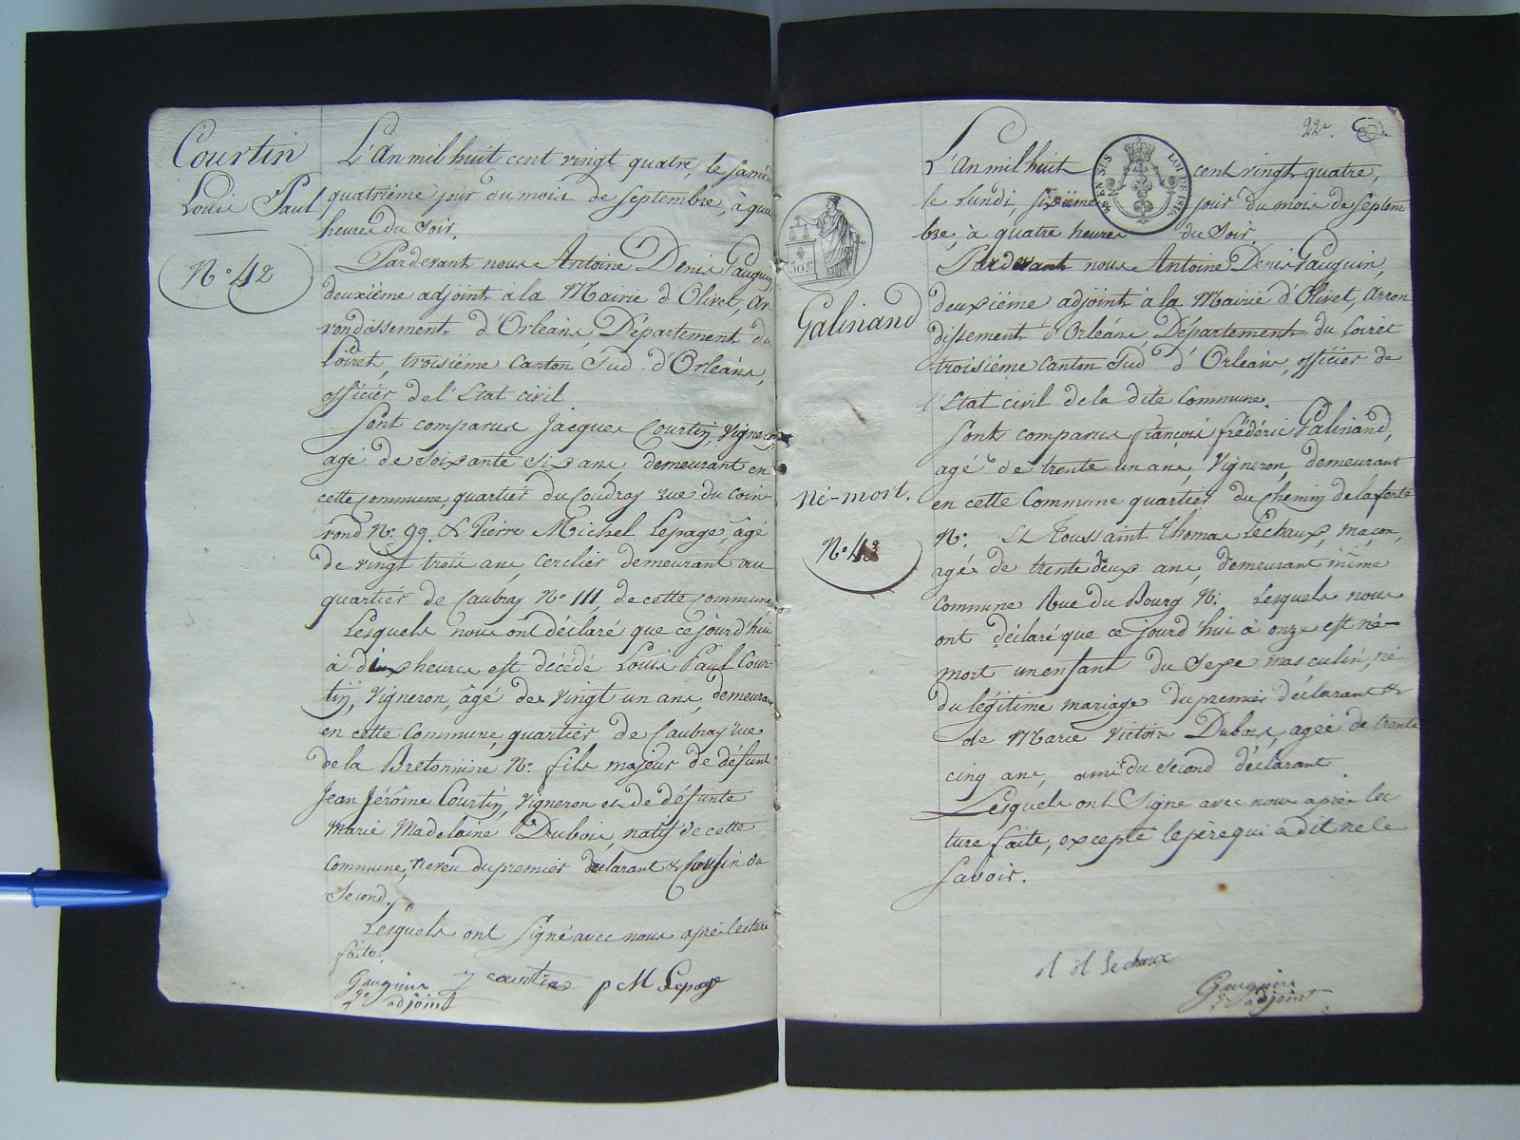 Courtin
Louis Paul
N° 42
L'An mil huit cent vingt quatre, le same
quatrième jour du mois de septembre, à qua
heures du Soir,
Pardevant nous Antoine Denis Gauguin
deuxième adjoint à la Mairie d'Olivet, Ar
rondissement d'Orléans, Département du
Loiret, troisième Canton Sud d'Orléans,
officier de l'Etat civil
Sont comparus Jacques Courtin, Vigneron
agé de soixante six ans, demeurant en
cette commune, quartier du Coudray rue du coin
rond N° 99. & Pierre Michel Lepage, âgé
de vingt trois ans cerclier demeurant au
quartier de Caubray N° 111, de cette commune
Lesquels nous ont déclaré que cejourd'hui
à dix heures est décédé Louis Paul Cour-
tin, Vigneron, âgé de vingt un ans, demeurant
en cette Commune, quartier de Caubray rue
de la Bretonnière N° fils majeur de défunt
Jean Jérôme Courtin, Vigneron et de défunte
Marie Madelaine Dubois, natif de cette
Commune, Neveu du premier déclarant & Cousin du
Second.
Lesquels ont signé avec nous après lecture
faite.
Gauguin
2e adjoint
J courtin
P M Lepage
22e.
EN SUS
LOI DE 1816
Galinand
né-mort.
N° 43
L'An mil huit cent vingt quatre,
le Lundi, sixième jour du mois de Septem
bre, à quatre heures du Soir.
Pardevant nous Antoine Denis Gauguin,
deuxième adjoint à la Mairie d'Olivet, Arron
dissement d'Orléans, Département du Loiret
troisième Canton Sud d'Orléans, officier de
l'Etat civil de la dite Commune.
Sont comparus françois frédéric Galinand,
agé de trente un ans, Vigneron, demeurant
en cette Commune quartier du Chemin de la ferté
N°. & Toussaint Thomas Lechaux, maçon,
agé de trente deux ans, demeurant même
Commune Rue du Bourg N°. Lesquels nous
ont déclaré que cejourd'hui à onze est né-
mort un enfant du Sexe masculin, né
du légitime mariage du premier déclarant &
de Marie Victoire Dubois, agée de trente
cinq ans, ami du Second déclarant.
Lesquels ont Signé avec nous après lec
ture faite, excepté le père qui a dit ne le
Savoir.
Lechaux
Gauguin
2e adjoint